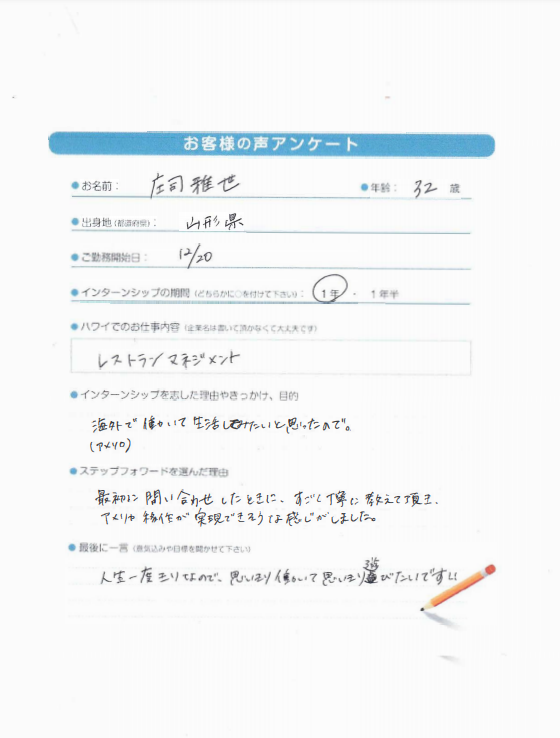 お客様の声アンケート
お名前： 庄司 雅世 年齢： 32 歳
出身地（都道府県）： 山形県
ご勤務開始日： 12/20
インターンシップの期間（どちらかに○を付けて下さい）： 1年 ・ 1年半
ハワイでのお仕事内容（企業名は書いて頂かなくて大丈夫です）
レストランマネジメント
インターンシップを志した理由やきっかけ、目的
海外で働いて生活してみたいと思ったので。
（アメリカ）
ステップフォワードを選んだ理由
最初に問い合わせしたときに、すごく丁寧に教えて頂き、
アメリカ移住が実現できそうな感じがしました。
最後に一言（意気込みや目標を聞かせて下さい）
人生一度きりなので、思いきり働いて思いきり遊びたいです!!